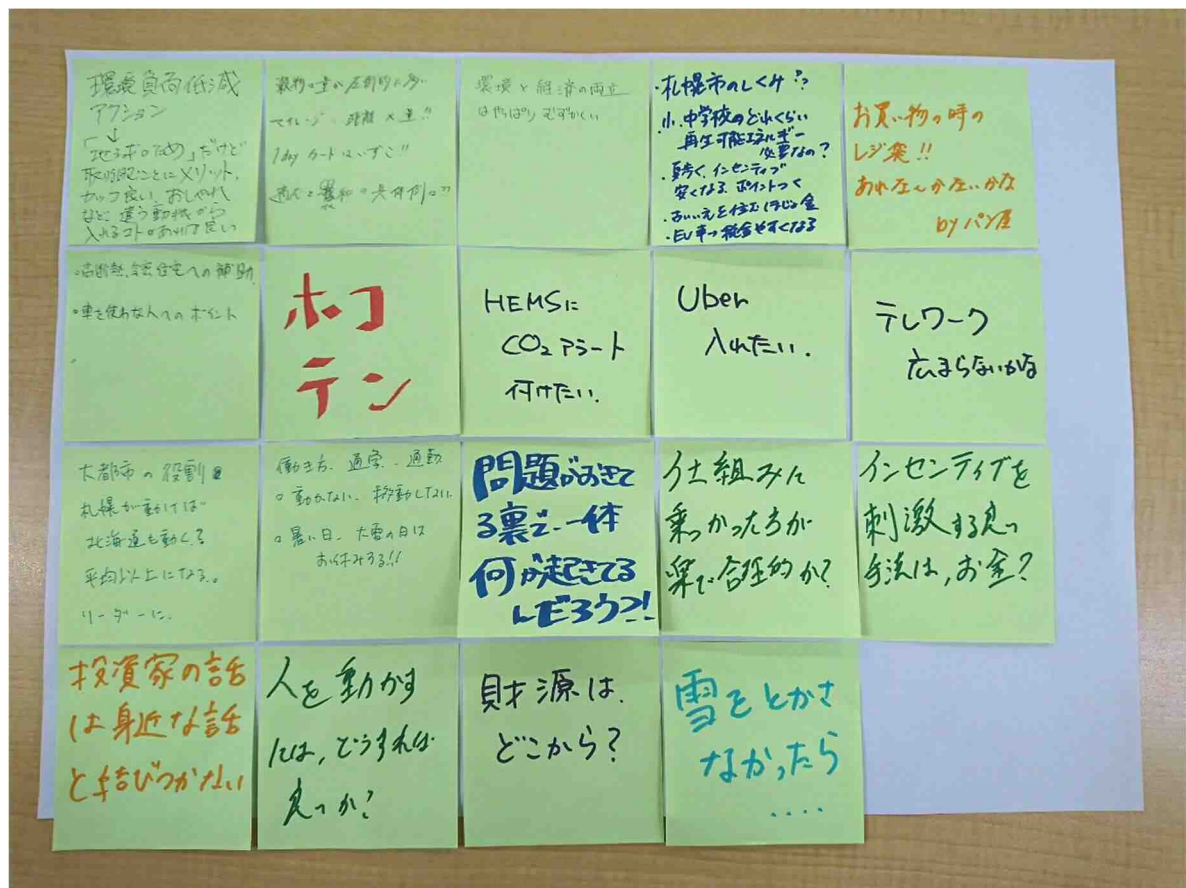 環境負荷低減
アクション
↓
「地球のため」だけど
取り組むことにメリット、
カッコ良い、おしゃれ
など、違う動機から
入れるコトがあれば良い
1day カードはいずこ!!
環境と経済の両立
はやっぱりむずかしい
・札幌市のしくみ
・小、中学校のどれくらい
再生可能エネルギー
必要なの?
インセンティブ
安くなる、ポイントつく
・古いいえを住むほじょ金
・EU車っ税金やすくなる
お買い物の時の
レジ袋!!
あれなんかないかな
by パン屋
・高断熱、住宅への補助
・車を使わな人へのポイント
ホコ
テン
HEMSに
CO2アラート
付けたい.
Uber
入れたい.
テレワーク
広まらないかな
大都市の役割
札幌が動けば
北海道も動く?
平均以上になる。
リーダーに.
働き方、通学、通勤
○動かない、移動しない
○暑い日、大雪の日は
お休みする!!
問題がおきて
る裏で、一体
何が起きてる
んだろう?!
仕組みに
乗っかった方が
楽で合理的か?
インセンティブを
刺激する良い
手法は,お金?
投資家の話
は身近な話
と結びつかない
人を動かす
には,どうすれば
良いか?
財源は、
どこから?
雪をとかさ
なかったら
....